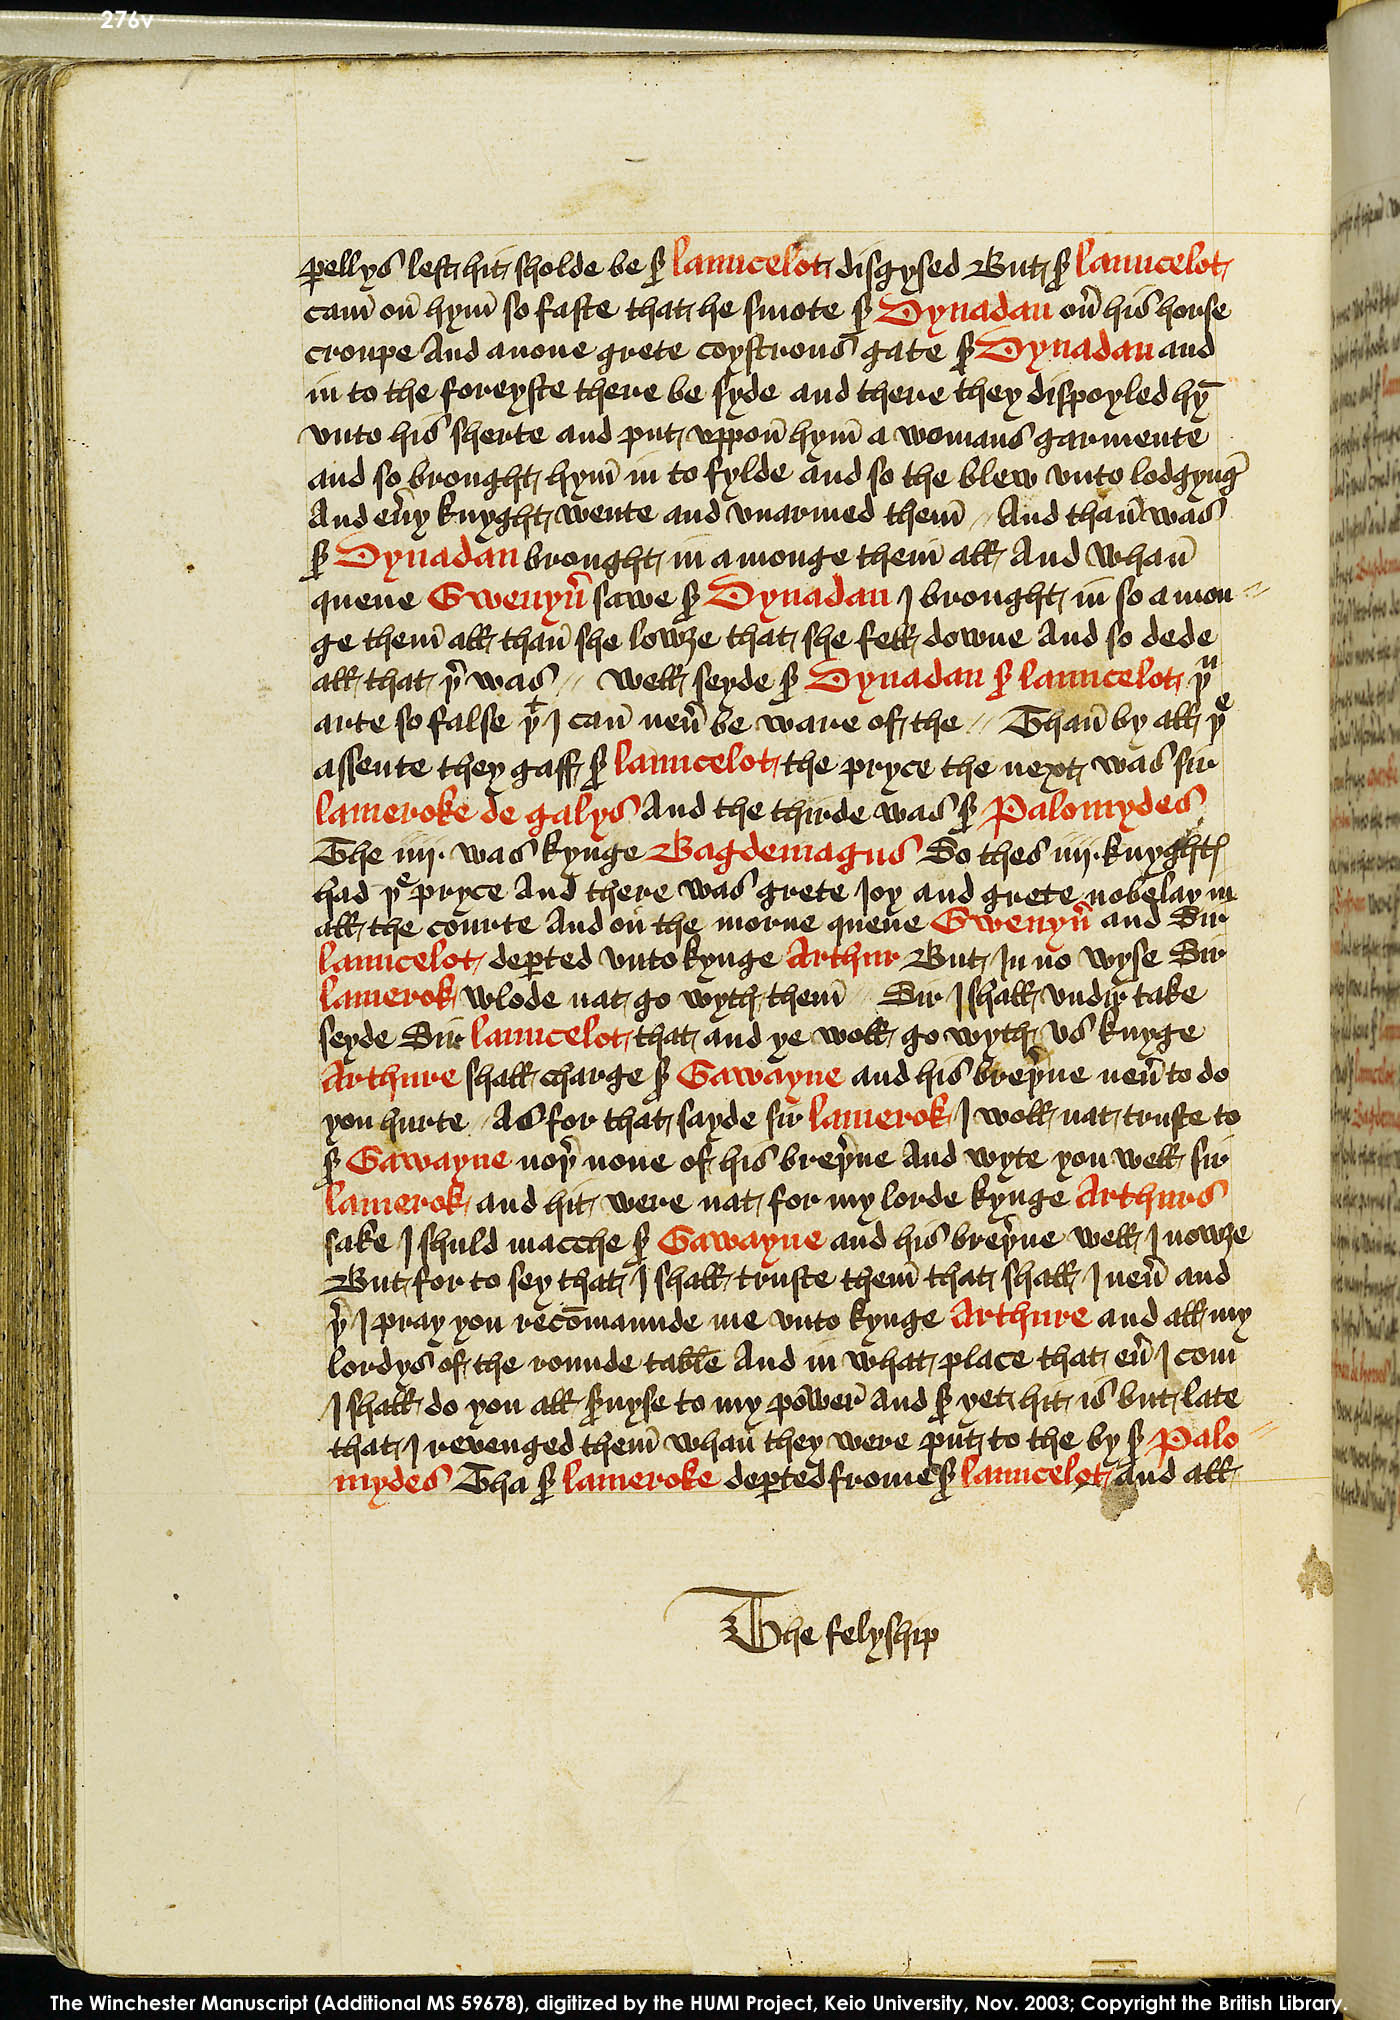 276v
pellys lest hit sholde be sr launcelot disgysed But sr launcelot
cam on hym so faste that he smote sr Dynadan ou̅ his horse
croupe And anone grete coystrons gate sr Dynadan and
in to the foreyste there be syde and there they dispoyled hȳ
vnto his sherte and put vppon hym a womans garmente
and so brought hym in to fylde and so the blew vnto lodgyng
And eu̅y knyght wente and vnarmed them // And than was
sr Dynadan brought in a monge them all And whan
quene Gwenyu̅ sawe sr Dynadan I brought in so a mon //
ge them all than she lowȝe that she fell downe And so dede
all that þr was // well seyde sr Dynadan sr launcelot þu
arte so false þt I can neu̅ be ware of the // Than by all þe
assente they gaff sr launcelot the pryce the next was sir
lameroke de galys And the thirde was sr Palomydes
The iiij. was kynge Bagdemagus So thes iiij. knyghtꝭ
had þe pryce And there was grete Ioy and grete nobelay in
all the courte And on the morne quene Gwenyu̅ and Sir
launcelot deꝑted vnto kynge Arthur But In no wyse Sir
lamerok wlode nat go wyth them // Sir I shall vndir take
seyde Sir launcelot that and ye woll go wyth vs knyge
Arthure shall charge sr Gawayne and his breþrne neu̅ to do
you hurte // As for that sayde sir lamerok I woll nat truste to
sr Gawayne noþr none of his breþrne And wyte you well sir
lamerok and hit were nat for my lorde kynge Arthurs
sake I shuld macche sr Gawayne and his breþrne well I nowȝe
But for to sey that I shall truste them that shall I neu̅ and
þr I pray you reco̅maunde me vnto kynge Arthure and all my
lordys of the rounde table And in what place that eu̅ I com
I shall do you all sr̅uyse to my power And sr yet hit is but late
that I revenged them whan they were put to the by sr Palo //
mydes Tha sr lameroke deꝑted frome sr launcelot and all
The felyship
The Winchester Manuscript (Additional MS 59678), digitized by the HUMI Project, Keio University, Nov. 2003; Copyright the British Library.